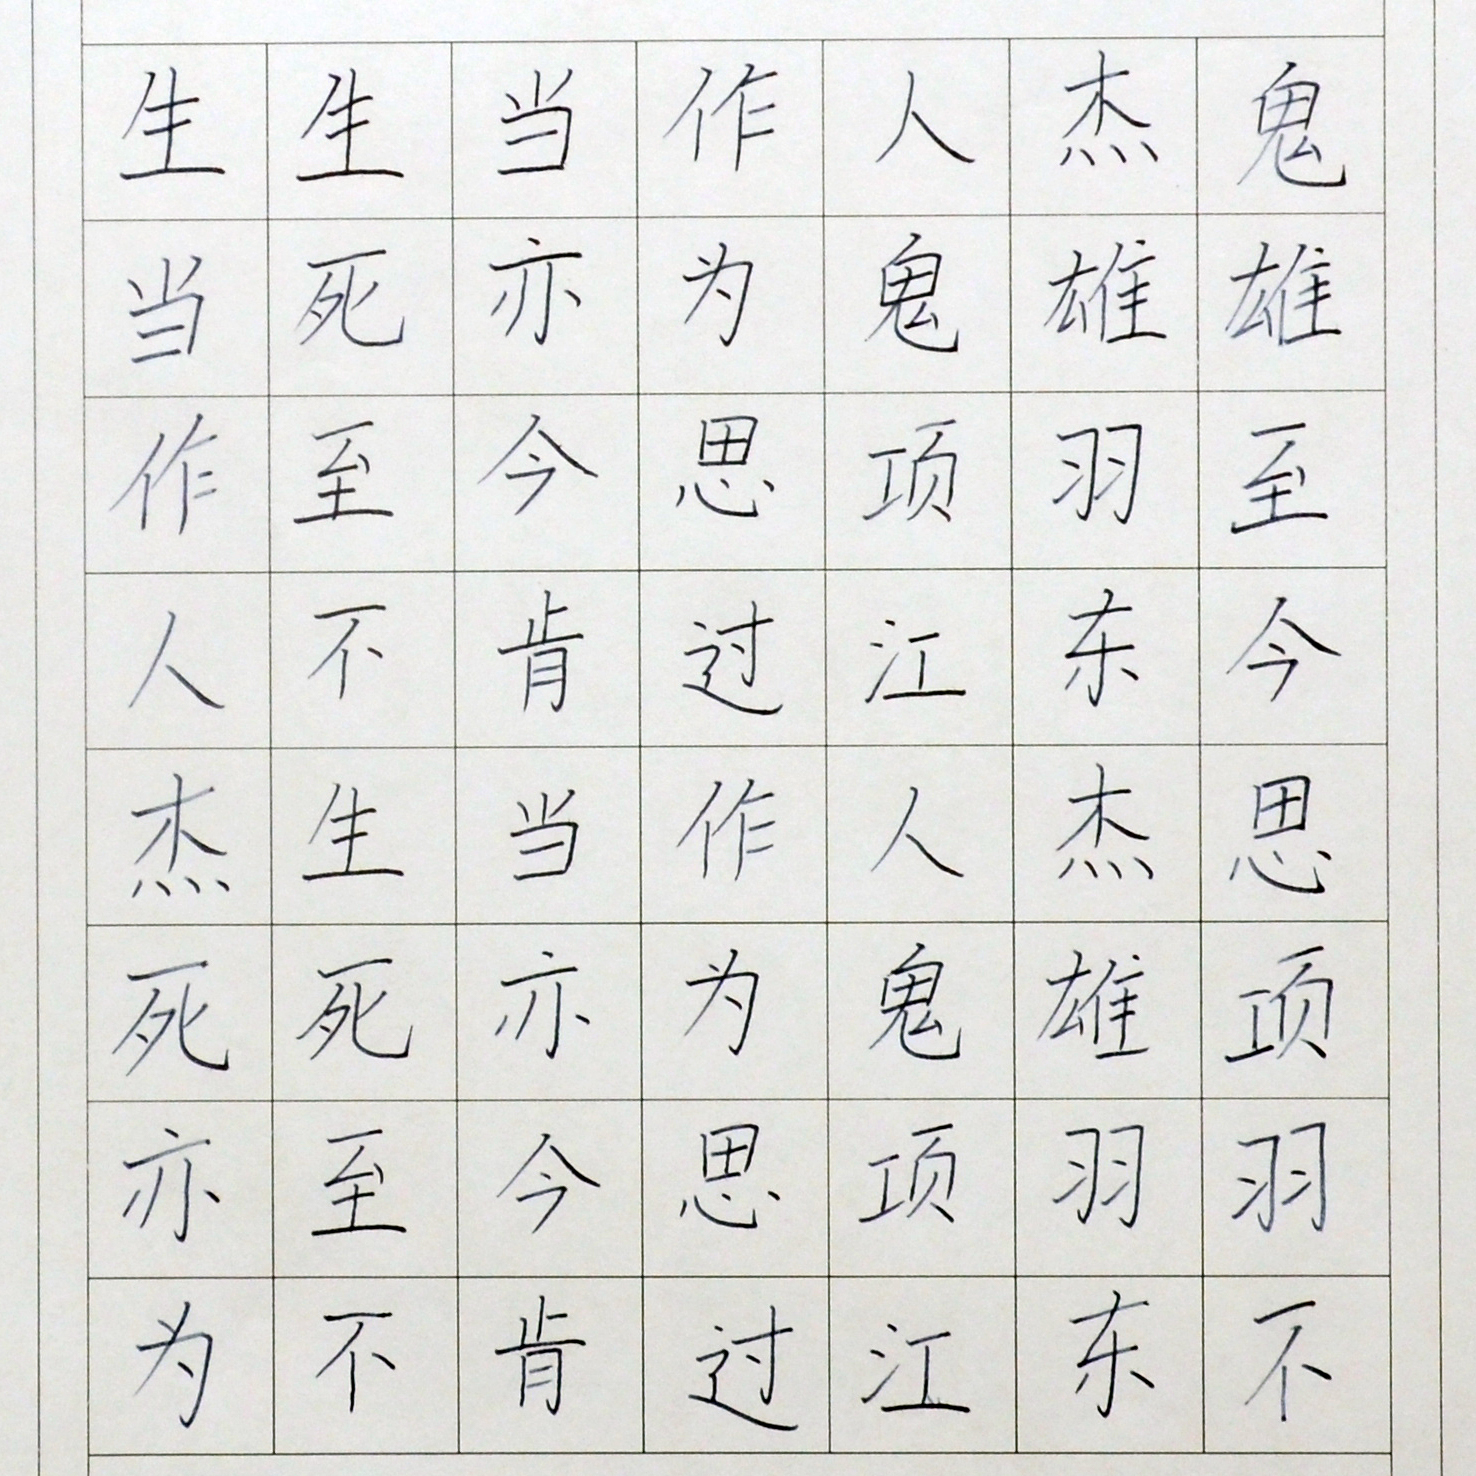 生生当作人杰鬼
当死亦为鬼雄雄
作至今思项羽至
人不肯过江东今
杰生当作人杰思
死死亦为鬼雄项
亦至今思项羽羽
为不肯过江东不